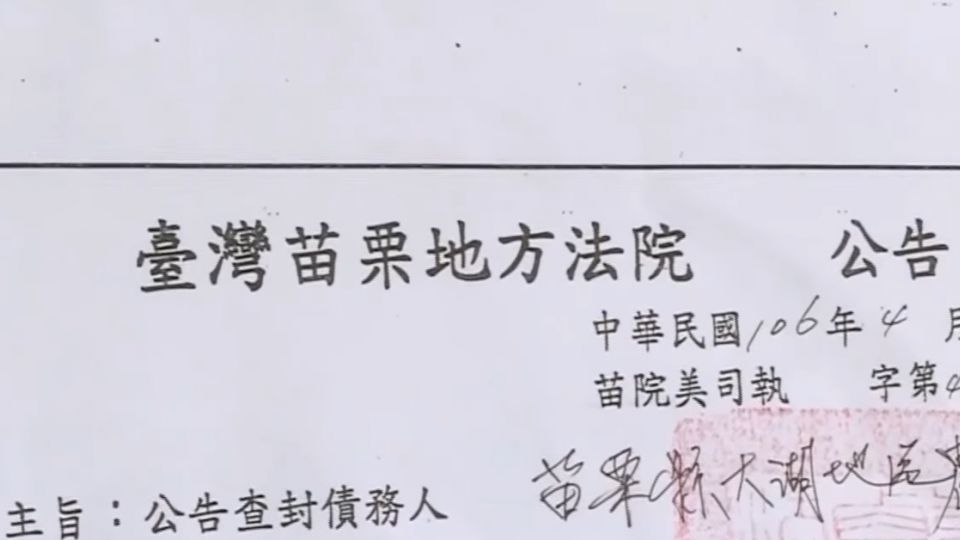 臺灣苗栗地方法院 公告
中華民國106年4月
苗院美司執 字第4
主旨：公告查封債務人 苗栗縣大湖地區農